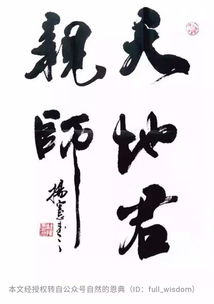 天地君
親師
楊憲
本文经授权转自公众号自然的恩典（ID：full_wisdom）